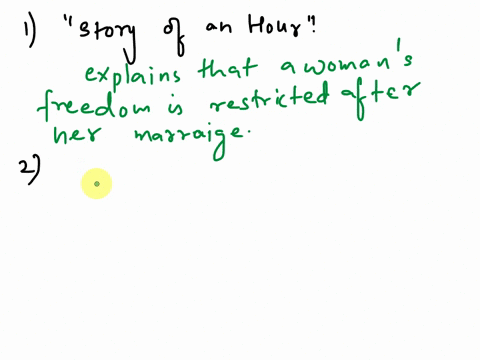 1) "Story of an Hour":
explains that a woman's
freedom is restricted after
her marraige.
2)